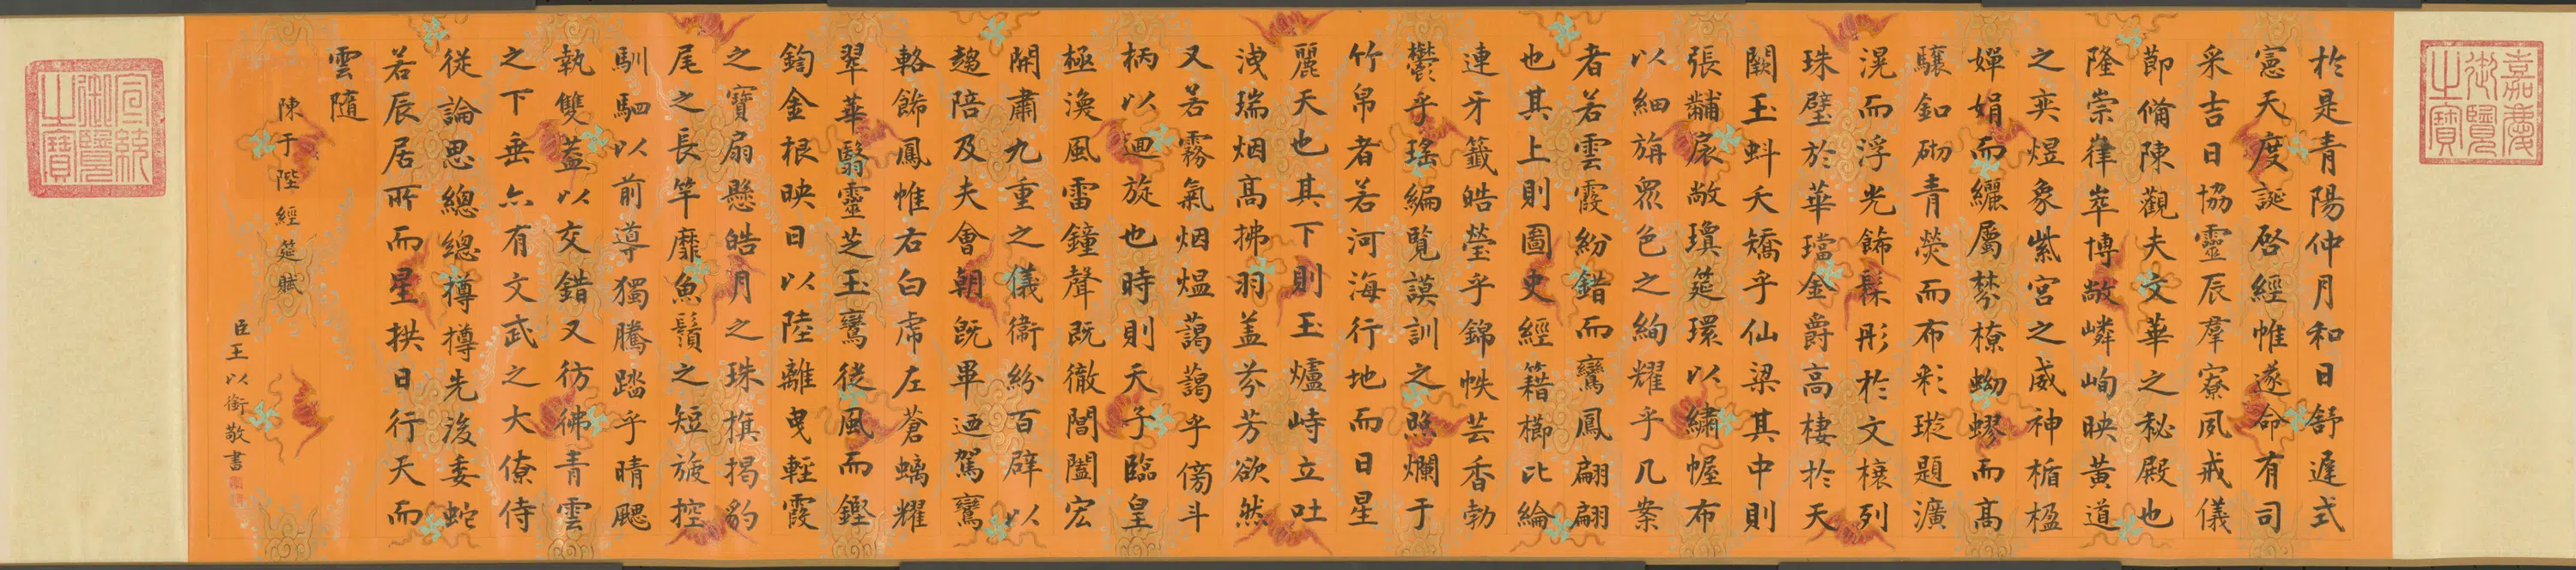 嘉慶御覽之寶
於是青陽仲月和日舒遲式
憲天度誕啓經帷遂命有司
采吉日協靈辰羣寮夙戒儀
節備陳觀夫文華之秘殿也
隆崇嵂崒博敞嶙峋映黃道
之奕煜象紫宮之威神楯楹
嬋娟而纚屬棼橑蚴蟉而高
驤釦砌青熒而布彩璇題瀇
滉而浮光飾髹彤於文榱列
珠璧於華璫金爵高棲於天
闕玉虯夭矯乎仙梁其中則
張黼扆敞瓊筵環以繡幄布
以細旃眾色之絢耀乎几案
者若雲霞紛錯而鸞鳳翩翩
也其上則圖史經籍櫛比綸
連牙籤皓瑩乎錦帙芸香勃
鬱乎瑤編覽謨訓之照爛于
竹帛者若河海行地而日星
麗天也其下則玉爐峙立吐
洩瑞烟高拂羽蓋芬芳欲然
又若霧氣烟熅藹藹乎傍斗
柄以迴旋也時則天子臨皇
極渙風雷鐘聲既徹閶闔宏
開肅九重之儀衛紛百辟以
趨陪及夫會朝既畢迺駕鸞
輅飾鳳帷右白虎左蒼螭耀
翠華翳靈芝玉鸞從風而鏗
鍧金根映日以陸離曳輕霞
之寶扇懸皓月之珠旗揭豹
尾之長竿靡魚鬚之短旗控
馴駟以前導獨騰踏乎晴颸
執雙蓋以交錯又彷彿青雲
之下垂亦有文武之大僚侍
從論思總總樽樽先後委蛇
若辰居所而星拱日行天而
雲隨
陳于陛經筵賦
臣王以銜敬書
宣統御覽之寶